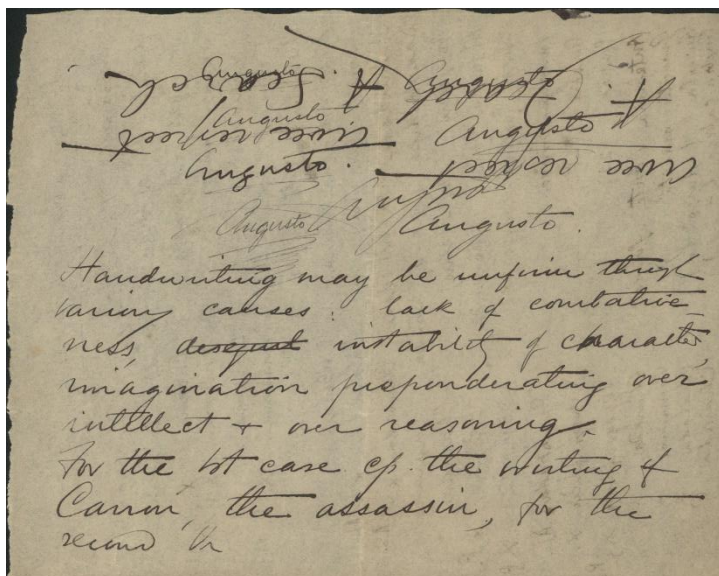 Augusto
Augusto
Augusto
Augusto
Augusto.
Augusto
Augusto.
Handwriting may be unfirm through
various causes: lack of combative-
ness, instability of character,
imagination preponderating over
intellect + over reasoning.
For the 1st case cp. the writing of
the assassin, for the
second the